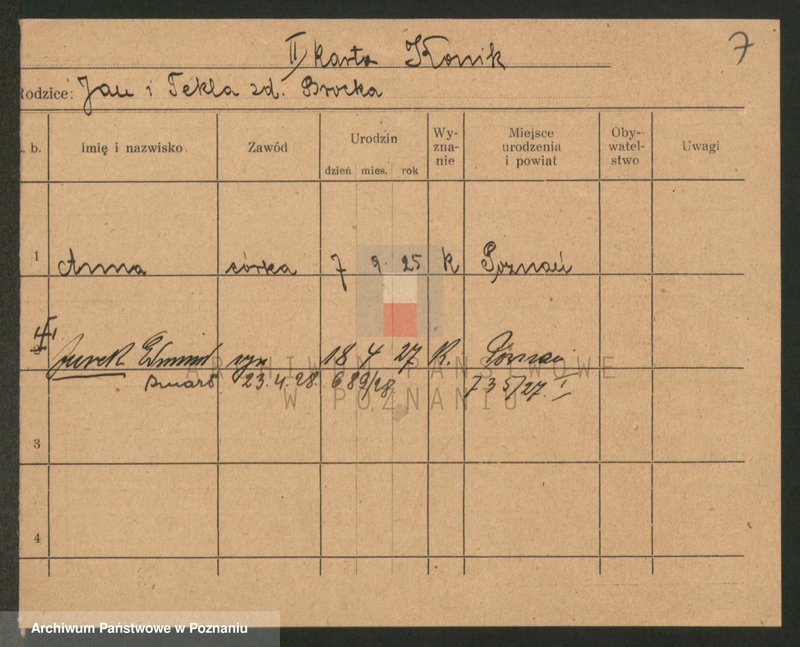 II karta Konik
7
Rodzice: Jan i Tekla zd. Brocka
L. b.
Imię i nazwisko
Zawód
Urodzin
dzień mies. rok
Wy-
zna-
nie
Miejsce
urodzenia
i powiat
Oby-
watel-
stwo
Uwagi
1 Anna córka 7 9. 25 K Poznań
Jurek Edmund syn 18 4 27 K. Poznań
zmarł 23.4.28. 689/28 735/27. I
3
4
ARCHIWUM PAŃSTWOWE
W POZNANIU
Archiwum Państwowe w Poznaniu